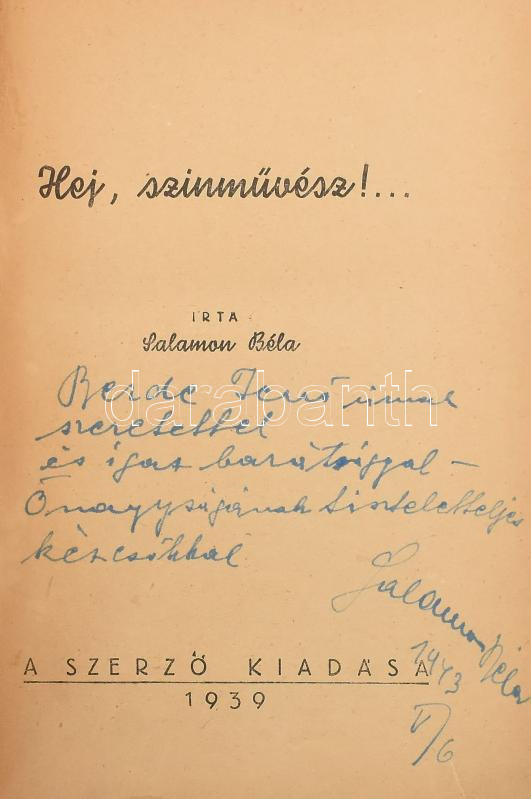 Hej, szinművész!...
IRTA
Salamon Béla
Berde Jenő úrnak
szeretettel
és igaz barátsággal –
Őnagyságának tiszteletteljes
kézcsókkal
Salamon Béla
1943
V/6
A SZERZŐ KIADÁSA
1939
darabanth